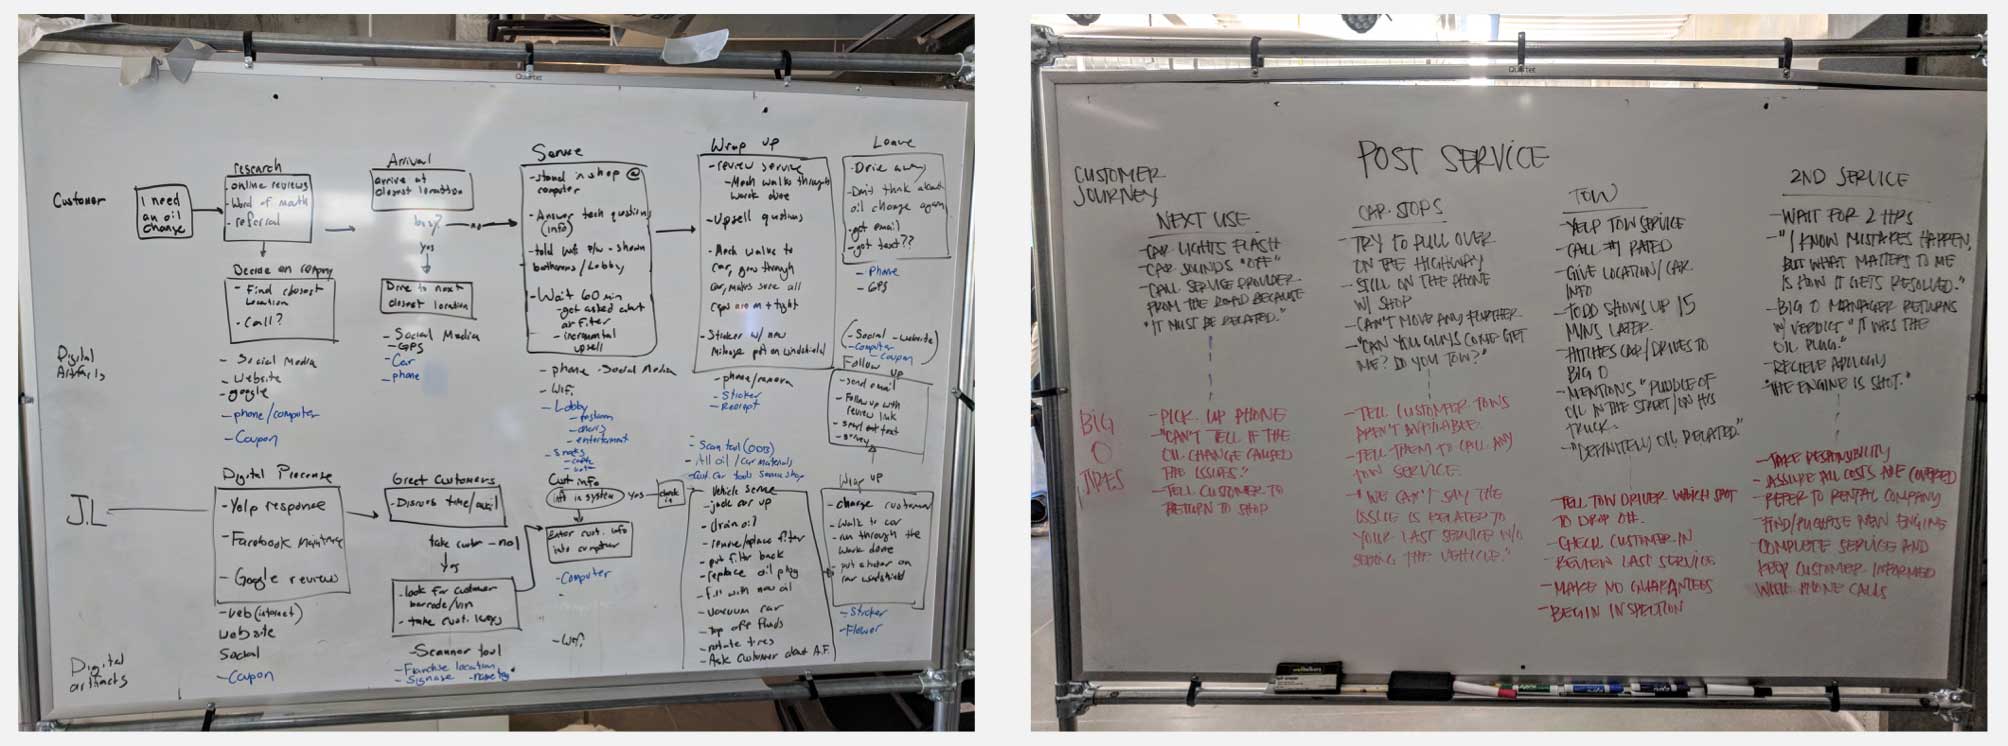 Quartet
Customer
I need
an oil
change
research
- online reviews
- Word of mouth
- referral
Decide on
- Find closest
location
- Call?
- Social Media
- Website
- google
- phone/computer
- Coupon
Arrival
arrive at
closest location
busy?
no
yes
Drive to next
closest location
- Social Media
- GPS
- Car
- phone
Service
- stand in shop @
computer
- Answer tech questions
(info)
- told wifi p/w - shown
bathrooms/Lobby
- Wait 60 min
- get asked about
air filter
- incremental
upsell
- phone - Social Media
- Wifi
- Lobby
- restroom
- chairs
- entertainment
- Snacks
Wrap up
- review service
- Mech walks through
work done
- Upsell questions
- Mech walks to
car, goes through
car, makes sure all
caps are on + tight
- Sticker w/ new
mileage put on windshield
- phone/camera
- Sticker
- Receipt
Leave
- Drive away
- Don't think about
oil change again
- got email
- got text??
- Phone
- GPS
- Social - website
- computer
- coupon
Follow up
- send email
- Follow up with
review link
- send out text
- survey
Digital
Artifacts
JL
Digital Presence
- Yelp response
- Facebook
- Google review
- web (internet)
website
Social
- Coupon
Greet Customers
take custr - no
yes
- look for customer
barcode/vin
- take cust. keys
- Scanner tool
- Franchise location
- Signage - nametag
Cust info
info in system
yes
check
in
Enter cust. info
into computer
- Computer
- Wifi
- Scan tool
- All oil/car materials
Vehicle serve
- jack car up
- drain oil
- remove/replace filter
- put filter back
- replace oil plug
- fill with new oil
- vacuum car
- top off fluids
- rotate tires
- Ask Customer about A.F.
Wrap up
- charge customer
- Walk to car
- run through the
work done
- put sticker on
car windshield
- Sticker
- Flower
Digital
artifacts
Quartet
POST SERVICE
CUSTOMER
JOURNEY
NEXT USE
- CAR LIGHTS FLASH
- CAR SOUNDS "OFF"
- CALL SERVICE PROVIDER
FROM THE ROAD BECAUSE
"IT MUST BE RELATED."
CAR STOPS
- TRY TO PULL OVER
ON THE HIGHWAY
- STILL ON THE PHONE
W/ SHOP
- CAN'T MOVE ANY FURTHER
- "CAN YOU GUYS COME GET
ME? DO YOU TOW?"
TOW
- YELP TOW SERVICE
- CALL #1 RATED
- GIVE LOCATION/CAR
INFO
- TODD SHOWS UP 15
MINS LATER.
- HITCHES CAR/DRIVES TO
BIG O
- MENTIONS "PUDDLE OF
OIL IN THE START/ON HIS
TRUCK.
- "DEFINITELY OIL RELATED."
2ND SERVICE
- WAIT FOR 2 HRS
- "I KNOW MISTAKES HAPPEN,
BUT WHAT MATTERS TO ME
IS HOW IT GETS RESOLVED."
- BIG O MANAGER RETURNS
W/ VERDICT "IT WAS THE
OIL PLUG."
- RECIEVE APOLOGY
"THE ENGINE IS SHOT."
BIG
O
TIRES
- PICK UP PHONE
- "CAN'T TELL IF THE
OIL CHANGE CAUSED
THE ISSUES."
- TELL CUSTOMER TO
RETURN TO SHOP
- TELL CUSTOMER TOWS
AREN'T AVAILABLE.
- TELL THEM TO CALL ANY
TOW SERVICE.
- "WE CAN'T SAY THE
ISSUE IS RELATED TO
YOUR LAST SERVICE W/O
SEEING THE VEHICLE."
TELL TOW DRIVER WHICH SPOT
TO DROP OFF.
- CHECK CUSTOMER IN
- REVIEW LAST SERVICE
- MAKE NO GUARANTEES
- BEGIN INSPECTION
- TAKE RESPONSIBILITY
- ASSURE ALL COSTS ARE COVERED
- REFER TO RENTAL COMPANY
- FIND/PURCHASE NEW ENGINE
COMPLETE SERVICE AND
KEEP CUSTOMER INFORMED
WITH PHONE CALLS